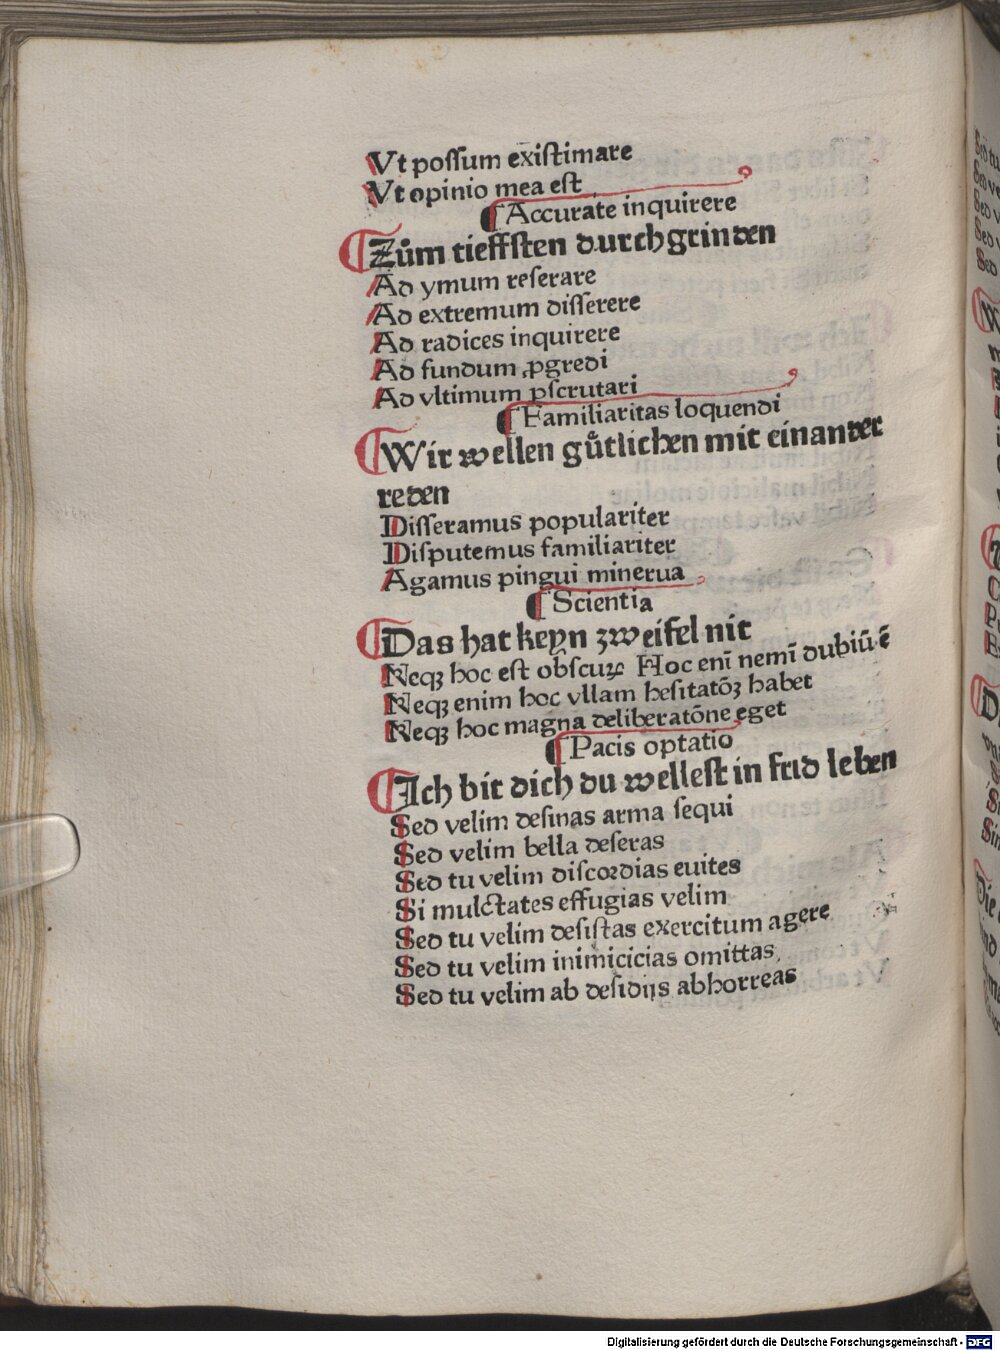 Vt poſſum exiſtimare
Vt opinio mea eſt
¶ Accurate inquirere
Zům tieffſten durchgrinden
Ad ymum reſerare
Ad extremum diſſerere
Ad radices inquirere
Ad fundum ꝓgredi
Ad vltimum pſcrutari
¶ Familiaritas loquendi
Wir wellen gůtlichen mit einander
reden
Diſſeramus populariter
Diſputemus familiariter
Agamus pingui minerua
¶ Scientia
Das hat keyn zweifel nit
Neqꝫ hoc eſt obſcuꝝ Hoc enī nemī dubiū ē
Neqꝫ enim hoc vllam heſitatōꝫ habet
Neqꝫ hoc magna deliberatōne eget
¶ Pacis optatio
Ich bit dich du welleſt in frid leben
Sed velim deſinas arma ſequi
Sed velim bella deſeras
Sed tu velim diſcordias euites
Si mulctates effugias velim
Sed tu velim deſiſtas exercitum agere
Sed tu velim inimicicias omittas
Sed tu velim ab deſidijs abhorreas
Digitalisierung gefördert durch die Deutsche Forschungsgemeinschaft - DFG